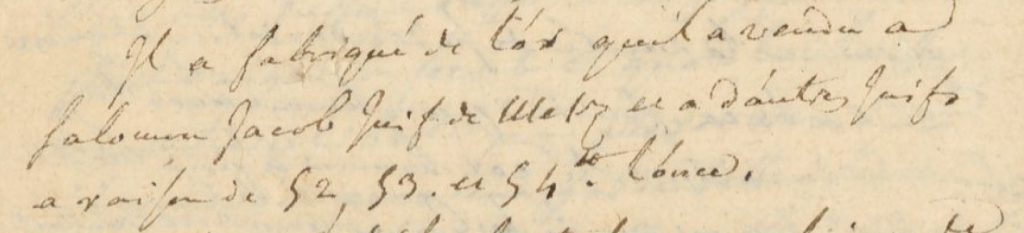 Il a fabriqué de l'or qu'il a vendu a
Salomon Jacob Juif de Metz et a d'autres Juifs
a raison de 52, 53. et 54ᵗᵗ. l'once.